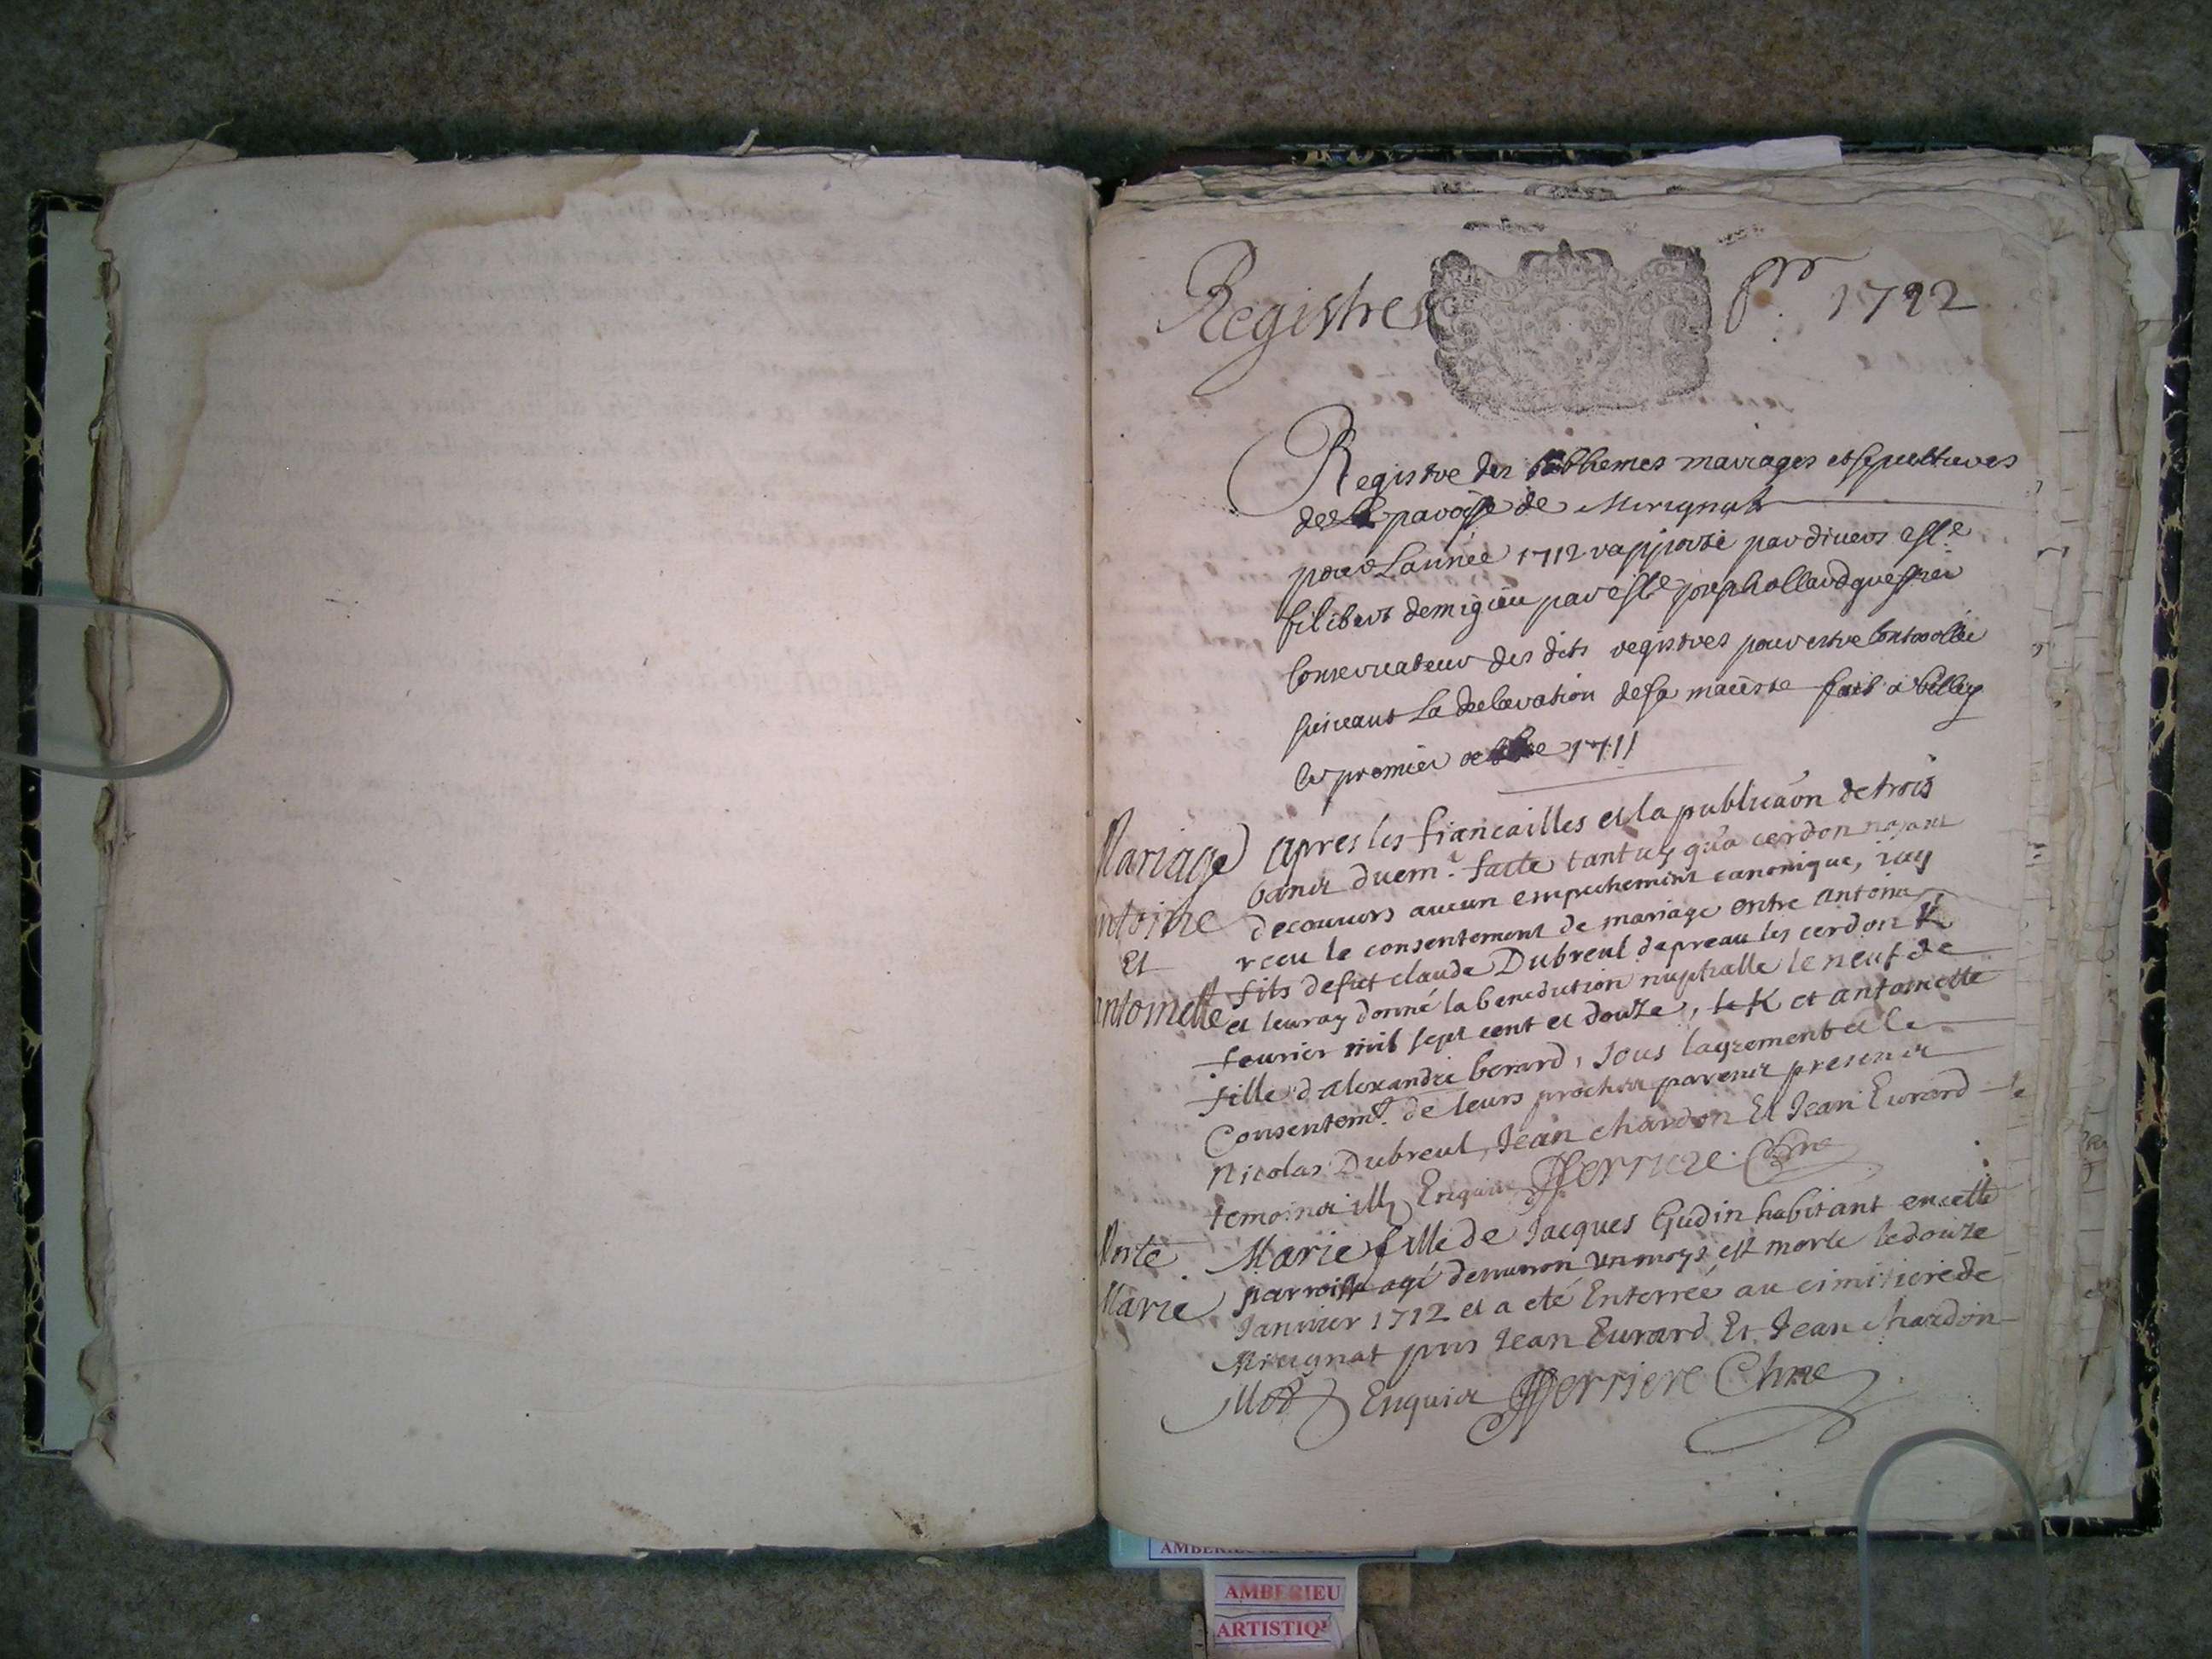 Registres pr 1712
Registre des babthemes mariages et sepultures
de la paroisse de Merignat
pour Lannée 1712 rapporté par divers
filibert demigieu par joseph ollard
Conservateur des dits registres pour estre Controollée
suivant La declaration de sa maieste fait a belley
le premier 1711
Mariage apres les fiancailles et la publicaon de trois
bancs duem.t faite tant icy qu'a cerdon nayant
antoine decouvers aucun empechement canonique, iay
Et receu le consentement de mariage entre antoine
fils de fut claude Dubreul de preau les cerdon K
antoinette et leur ay donné la benediction nuptialle le neuf de
feurier mil sept cent et douze, le K et antoinette
fille d alexandre berard, sous lagrement et le
Consentem.t de leurs proches parens presens
Nicolas Dubreul, Jean chardon Et Jean Eurard
temoins ill. Enquis fferriere Cure
Morte Marie fille de Jacques Gudin habitant en cette
Marie parroisse agé denuiron un moys est morte le douze
Janvier 1712 et a eté Enterrée au cimitiere de
Mirignat pns Jean Eurard Et Jean chardon
ill. Enquis fferriere Cure
AMBERIEU
ARTISTIQ